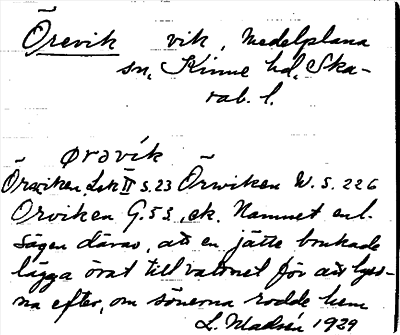 Örevik vik, Medelplana
sn, Kinne hd, Ska-
rab. l.
ørøvik
Örviken Lsk II s. 23 Örwiken W. s. 226
Orviken G.S.S. ek. Namnet enl.
sägen därav, att en jätte brukade
lägga örat till vattnet för att lyss-
na efter, om sönerna rodde hem
L. Madsén 1929